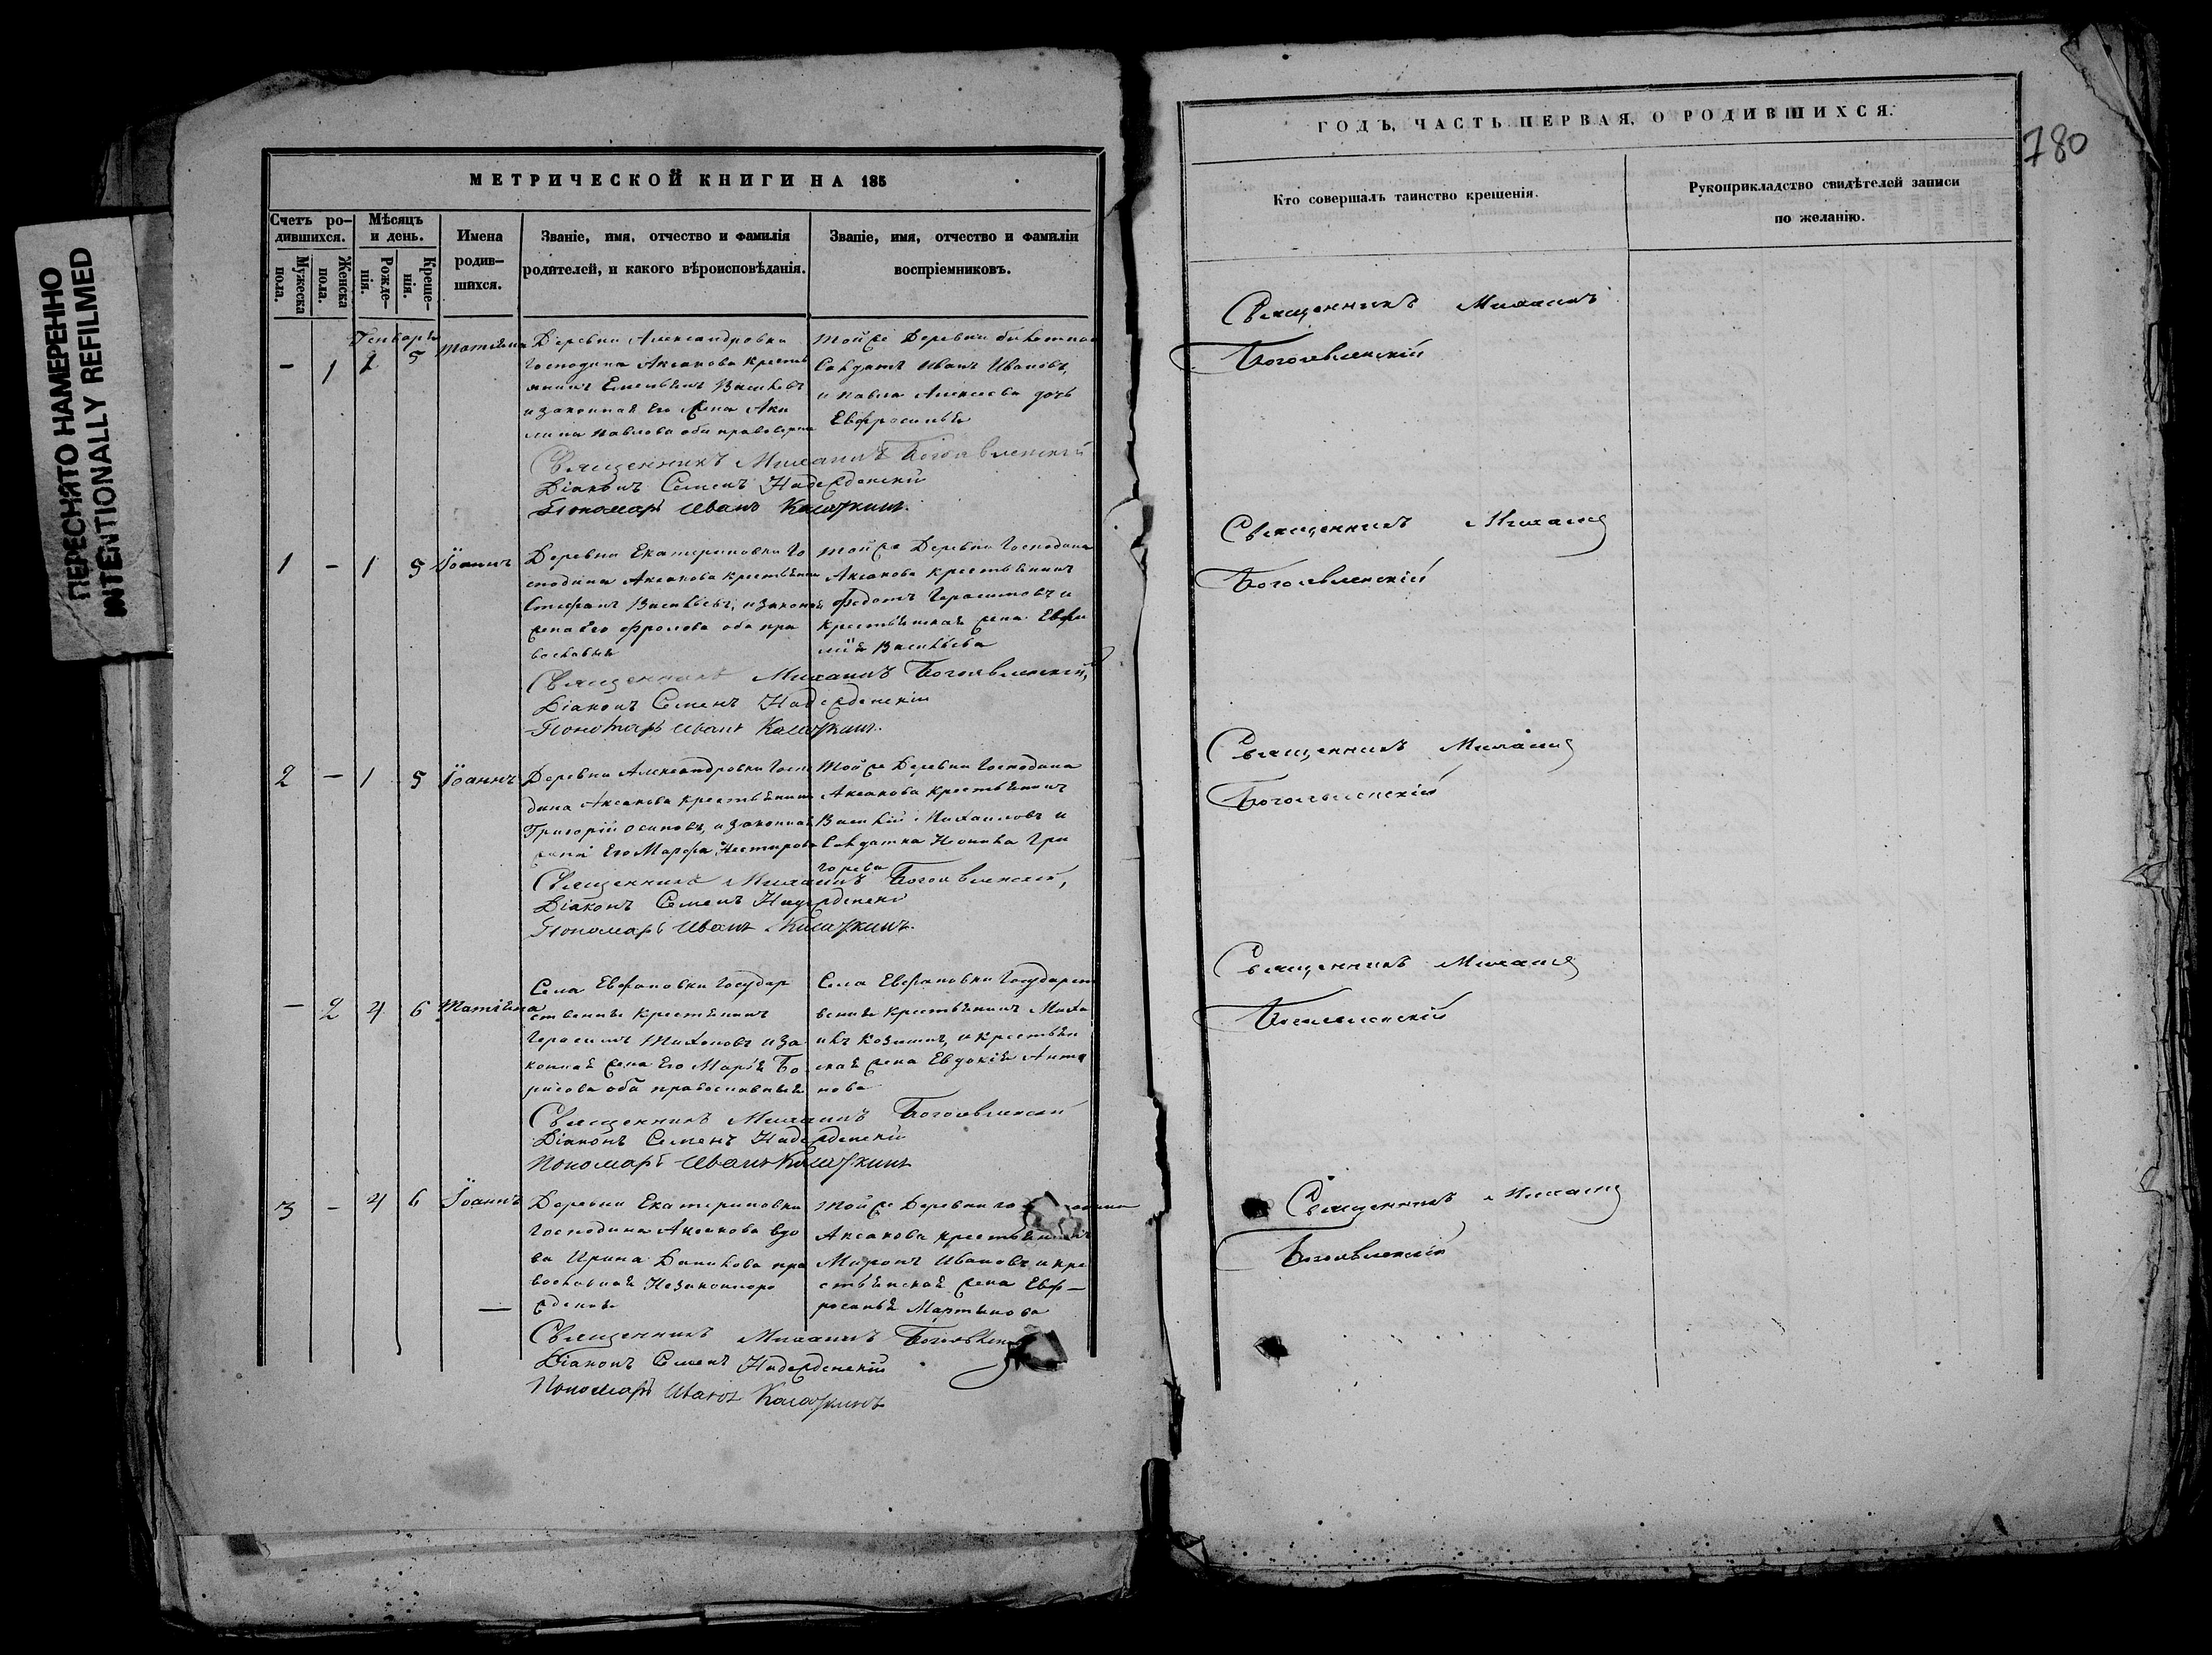 ПЕРЕСНЯТО НАМЕРЕННО
INTENTIONALLY REFILMED
МЕТРИЧЕСКОЙ КНИГИ НА 185
Счетъ ро-
дившихся.
Мужеска
пола.
Женска
пола.
Мѣсяцъ
и день.
Рожде-
нія.
Креще-
нія.
Имена
родив-
шихся.
Званіе, имя, отчество и фамилія
родителей, и какого вѣроисповѣданія.
Званіе, имя, отчество и фамиліи
воспріемниковъ.
Генварь
- 1 2 5 Матиѣна
Деревни Александровки
Господина Аксакова кресть
янинъ Емельянъ Васильевъ
и законная его жена Аку
лина Павлова оба
Той же Деревни
Солдатъ Иванъ Ивановъ,
и Павла Алексеева дочь
Евфросинья
Священникъ Михаилъ Богоявленскій
Діаконъ Семенъ Надежденскій
Пономарь Иванъ
1 - 1 5 Іоаннъ
Деревни Екатериновки Го
сподина Аксакова крестьянинъ
Стефанъ Васильевъ, и законная
жена его Фролова оба пра
вославные
Той же Деревни Господина
Аксакова крестьянинъ
Федотъ Герасимовъ и
крестьянская жена Евфи
мія Васильева
Священникъ Михаилъ Богоявленскій,
Діаконъ Семенъ Надежденскій
Пономарь Иванъ
2 - 1 5 Іоаннъ
Деревни Александровки Госпо
дина Аксакова крестьянинъ
Григорій Осиповъ, и законная
жена Его Марфа Нестирова
Той же Деревни Господина
Аксакова крестьянинъ
Василій Михаиловъ и
Солдатка Гри
горьева
Священникъ Михаилъ Богоявленскій,
Діаконъ Семенъ Надежденскій
Пономарь Иванъ
- 2 4 6 Матиѣна
Села Евфановки Государ
ственные крестьянинъ
Герасимъ Тихоновъ и за
конная жена Его Марія Бо
рисова оба православные
Села Евфановки Государст
венные крестьянинъ Миха
илъ Козминъ, и крестьян
ская жена Евдокія Анто
нова
Священникъ Михаилъ Богоявленскій
Діаконъ Семенъ Надежденскій
Пономарь Иванъ
3 - 4 6 Іоаннъ
Деревни Екатериновки
Господина Аксакова вдо
ва Ирина Данилова пра
вославная Незаконноро
жденые
Той же Деревни
Аксакова крестьянинъ
Миронъ Ивановъ и кре
стьянская жена Евф-
росинья Мартынова
Священникъ Михаилъ
Діаконъ Семенъ Надежденскій
Пономарь Иванъ
ГОДЪ, ЧАСТЬ ПЕРВАЯ, О РОДИВШИХСЯ.
780
Кто совершалъ таинство крещенія.
Рукоприкладство свидѣтелей записи
по желанію.
Священникъ Михаилъ
Богоявленскій
Священникъ Михаилъ
Богоявленскій
Священникъ Михаилъ
Богоявленскій
Священникъ Михаилъ
Богоявленскій
Священникъ Михаилъ
Богоявленскій